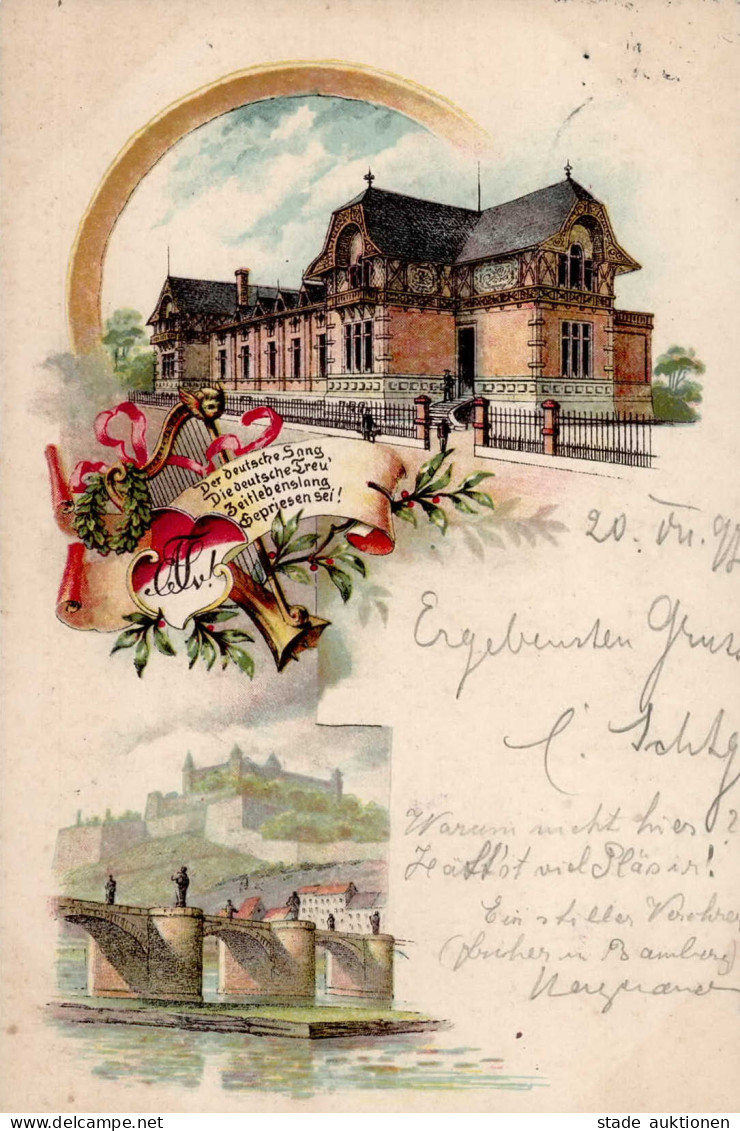 Der deutsche Sang
Die deutsche Treu'
Zeitlebenslang
Gepriesen sei!
20.
Ergebensten Gruss
C.
Warum nicht hier?
Hätt'st viel Pläsir!
Ein stiller Verehrer
(früher in Bamberg)
stade auktionen